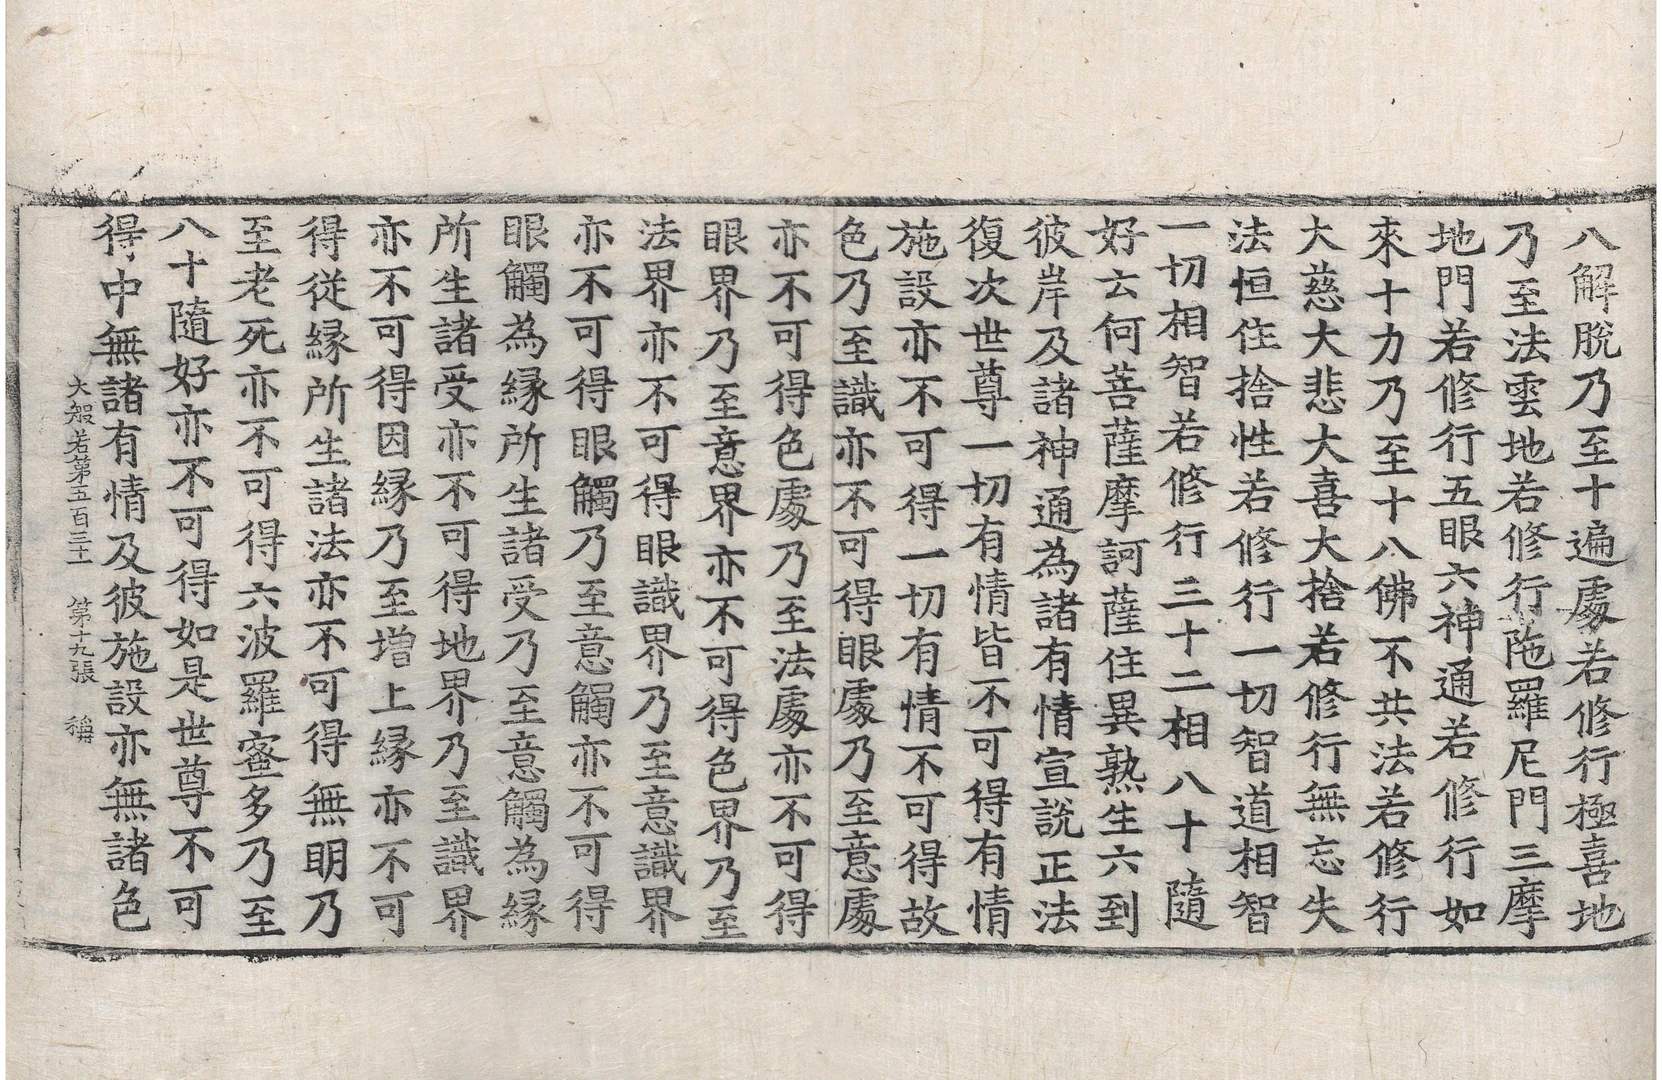 八解脫乃至十遍處若修行極喜地
乃至法雲地若修行陁羅尼門三摩
地門若修行五眼六神通若修行如
來十力乃至十八佛不共法若修行
大慈大悲大喜大捨若修行無忘失
法恒住捨性若修行一切智道相智
一切相智若修行三十二相八十隨
好云何菩薩摩訶薩住異熟生六到
彼岸及諸神通為諸有情宣說正法
復次世尊一切有情皆不可得有情
施設亦不可得一切有情不可得故
色乃至識亦不可得眼處乃至意處
亦不可得色處乃至法處亦不可得
眼界乃至意界亦不可得色界乃至
法界亦不可得眼識界乃至意識界
亦不可得眼觸乃至意觸亦不可得
眼觸為緣所生諸受乃至意觸為緣
所生諸受亦不可得地界乃至識界
亦不可得因緣乃至增上緣亦不可
得從緣所生諸法亦不可得無明乃
至老死亦不可得六波羅蜜多乃至
八十隨好亦不可得如是世尊不可
得中無諸有情及彼施設亦無諸色
大般若第五百三十一 第十九張 稱